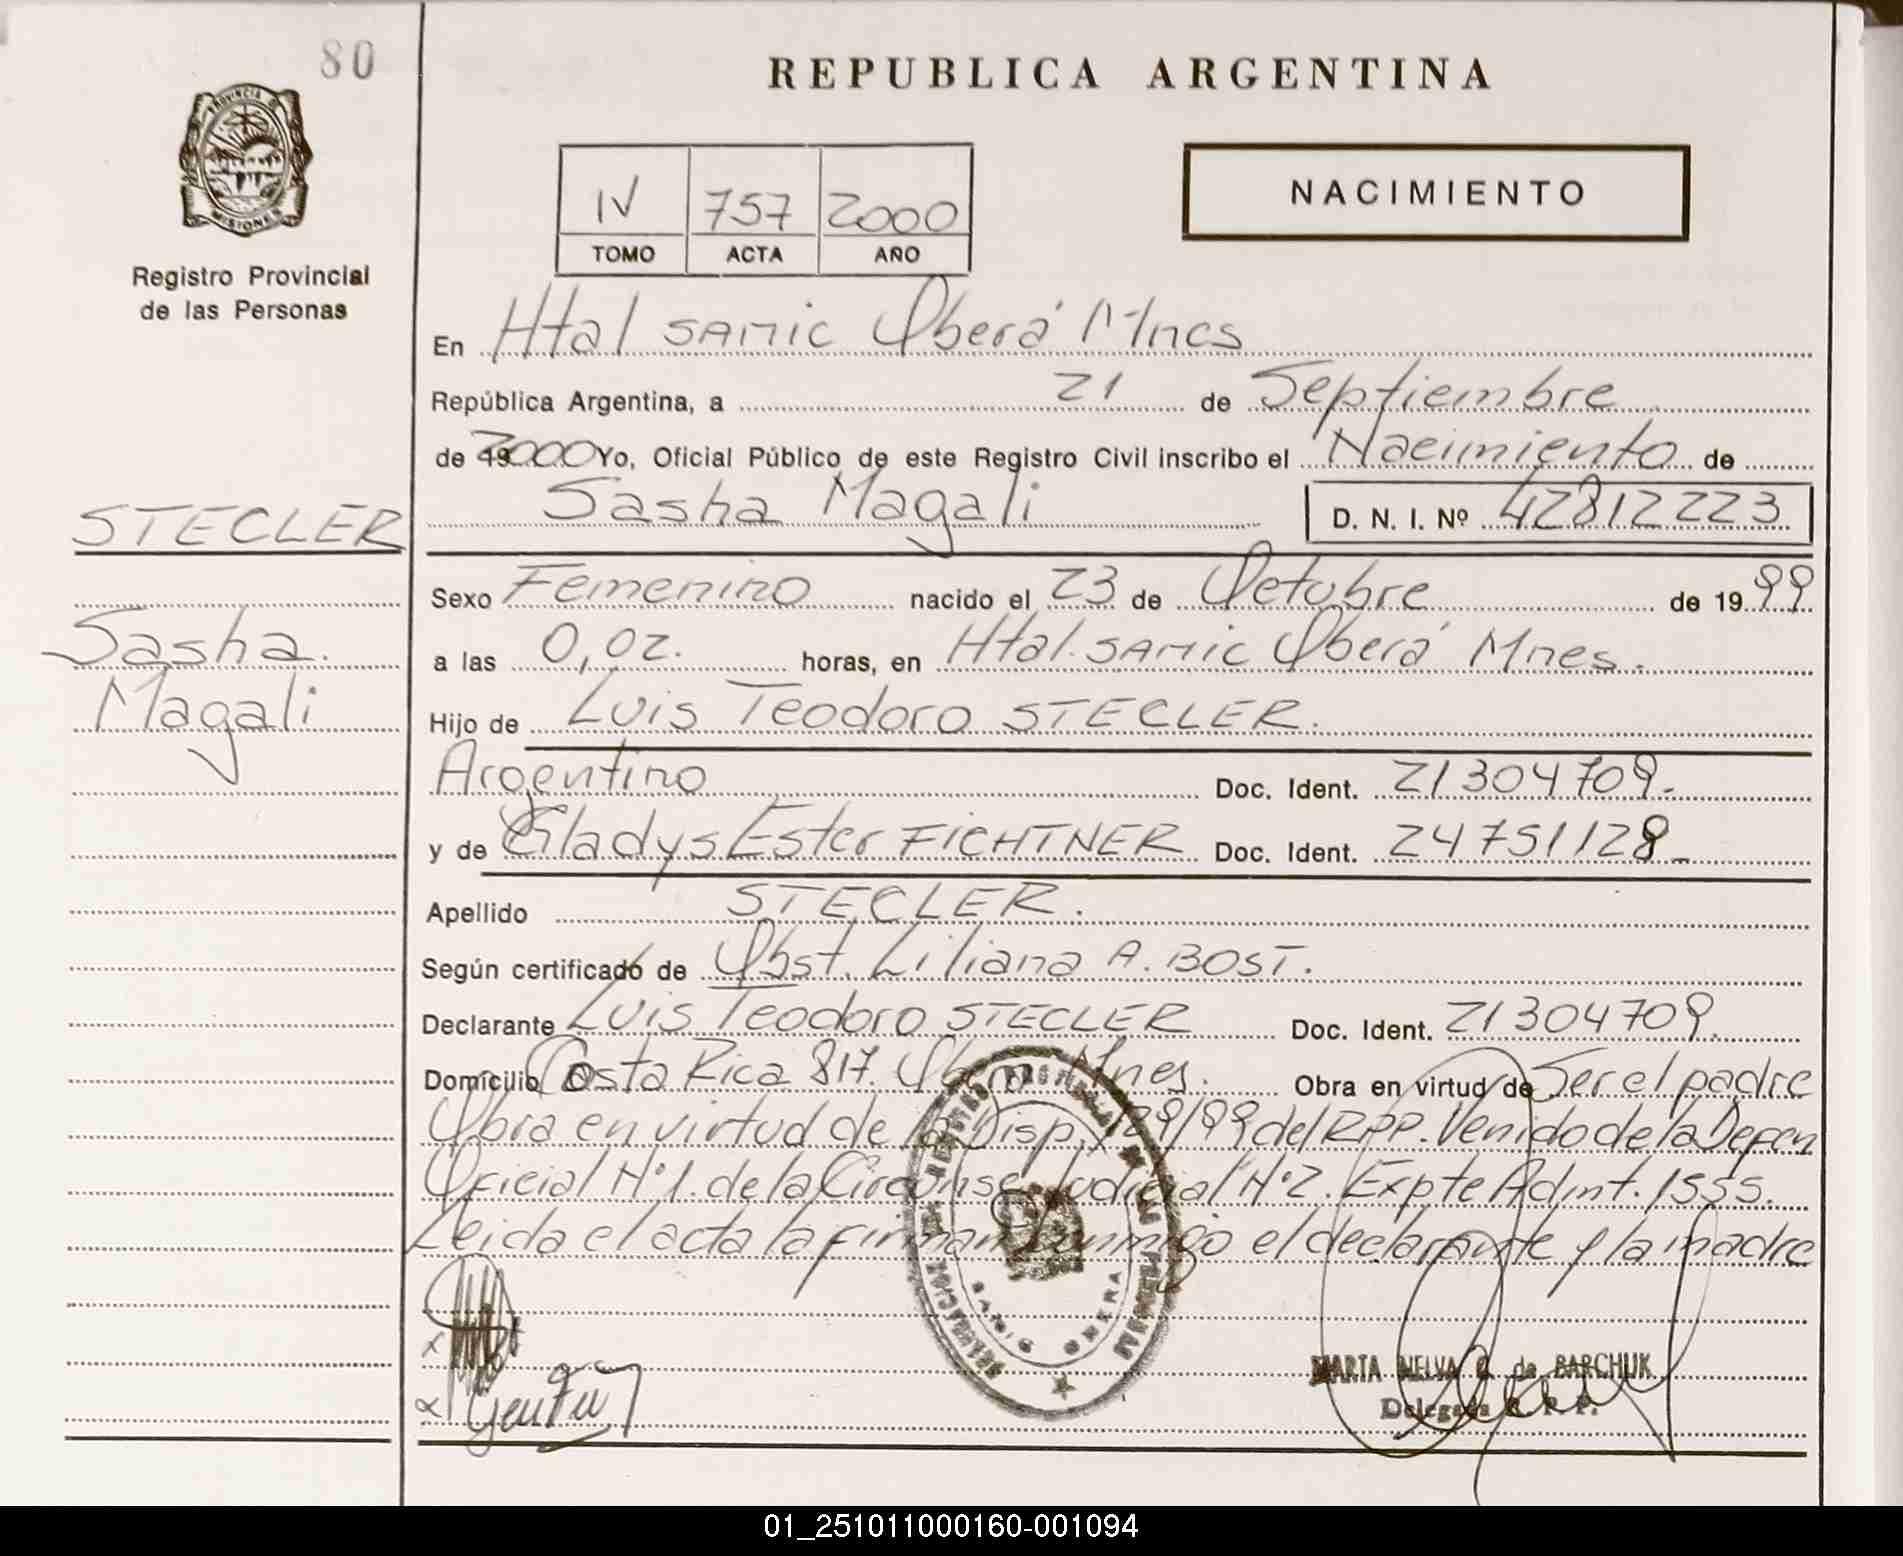 80
REPUBLICA ARGENTINA
PROVINCIA D
MISIONES
Registro Provincial
de las Personas
IV 757 2000
TOMO ACTA AÑO
NACIMIENTO
En Htal SAMIC Oberá Mnes
República Argentina, a 21 de Septiembre
de 192000 Yo, Oficial Público de este Registro Civil inscribo el Nacimiento de
Sasha Magali D. N. I. Nº 42812223
STECLER
Sasha
Magali
Sexo Femenino nacido el 23 de Octubre de 1999
a las 0,02. horas, en Htal. SAMIC Oberá Mnes.
Hijo de Luis Teodoro STECLER.
Argentino Doc. Ident. 21304709.
y de Gladys Ester FICHTNER Doc. Ident. 24751128
Apellido STECLER.
Según certificado de Obst. Liliana A. BOST.
Declarante Luis Teodoro STECLER Doc. Ident. 21304709.
Domicilio Costa Rica 817. Oberá Mnes. Obra en virtud de Ser el padre
Obra en virtud de la Disp. /99 del RPP. Venido de la Defen
Oficial Nº1. de la Circunsc. Judicial Nº2. Expte Admt. 1555.
Leida el acta la firman conmigo el declarante y la madre
SAMIC OBERA
MARTA NELVA G. de BARCHUK
Delegada R. P. P.
01_251011000160-001094